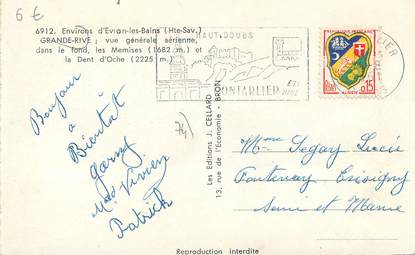 6 €
6912. Environs d'Evian-les-Bains (Hte-Sav.)
GRANDE-RIVE : vue générale aérienne,
dans le fond, les Memises (1682 m.) et
la Dent d'Oche (2225 m.)
HAUT-DOUBS
PONTARLIER
ÉTÉ
HIVER
ALGER
0,15
Bonjour
à
Bientôt
Patrick
74)
Les Editions J. CELLARD
13, rue de l'Economie - BRON
Mme Segay Lucie
Fontenay Trésigny
Seine et Marne
Reproduction Interdite